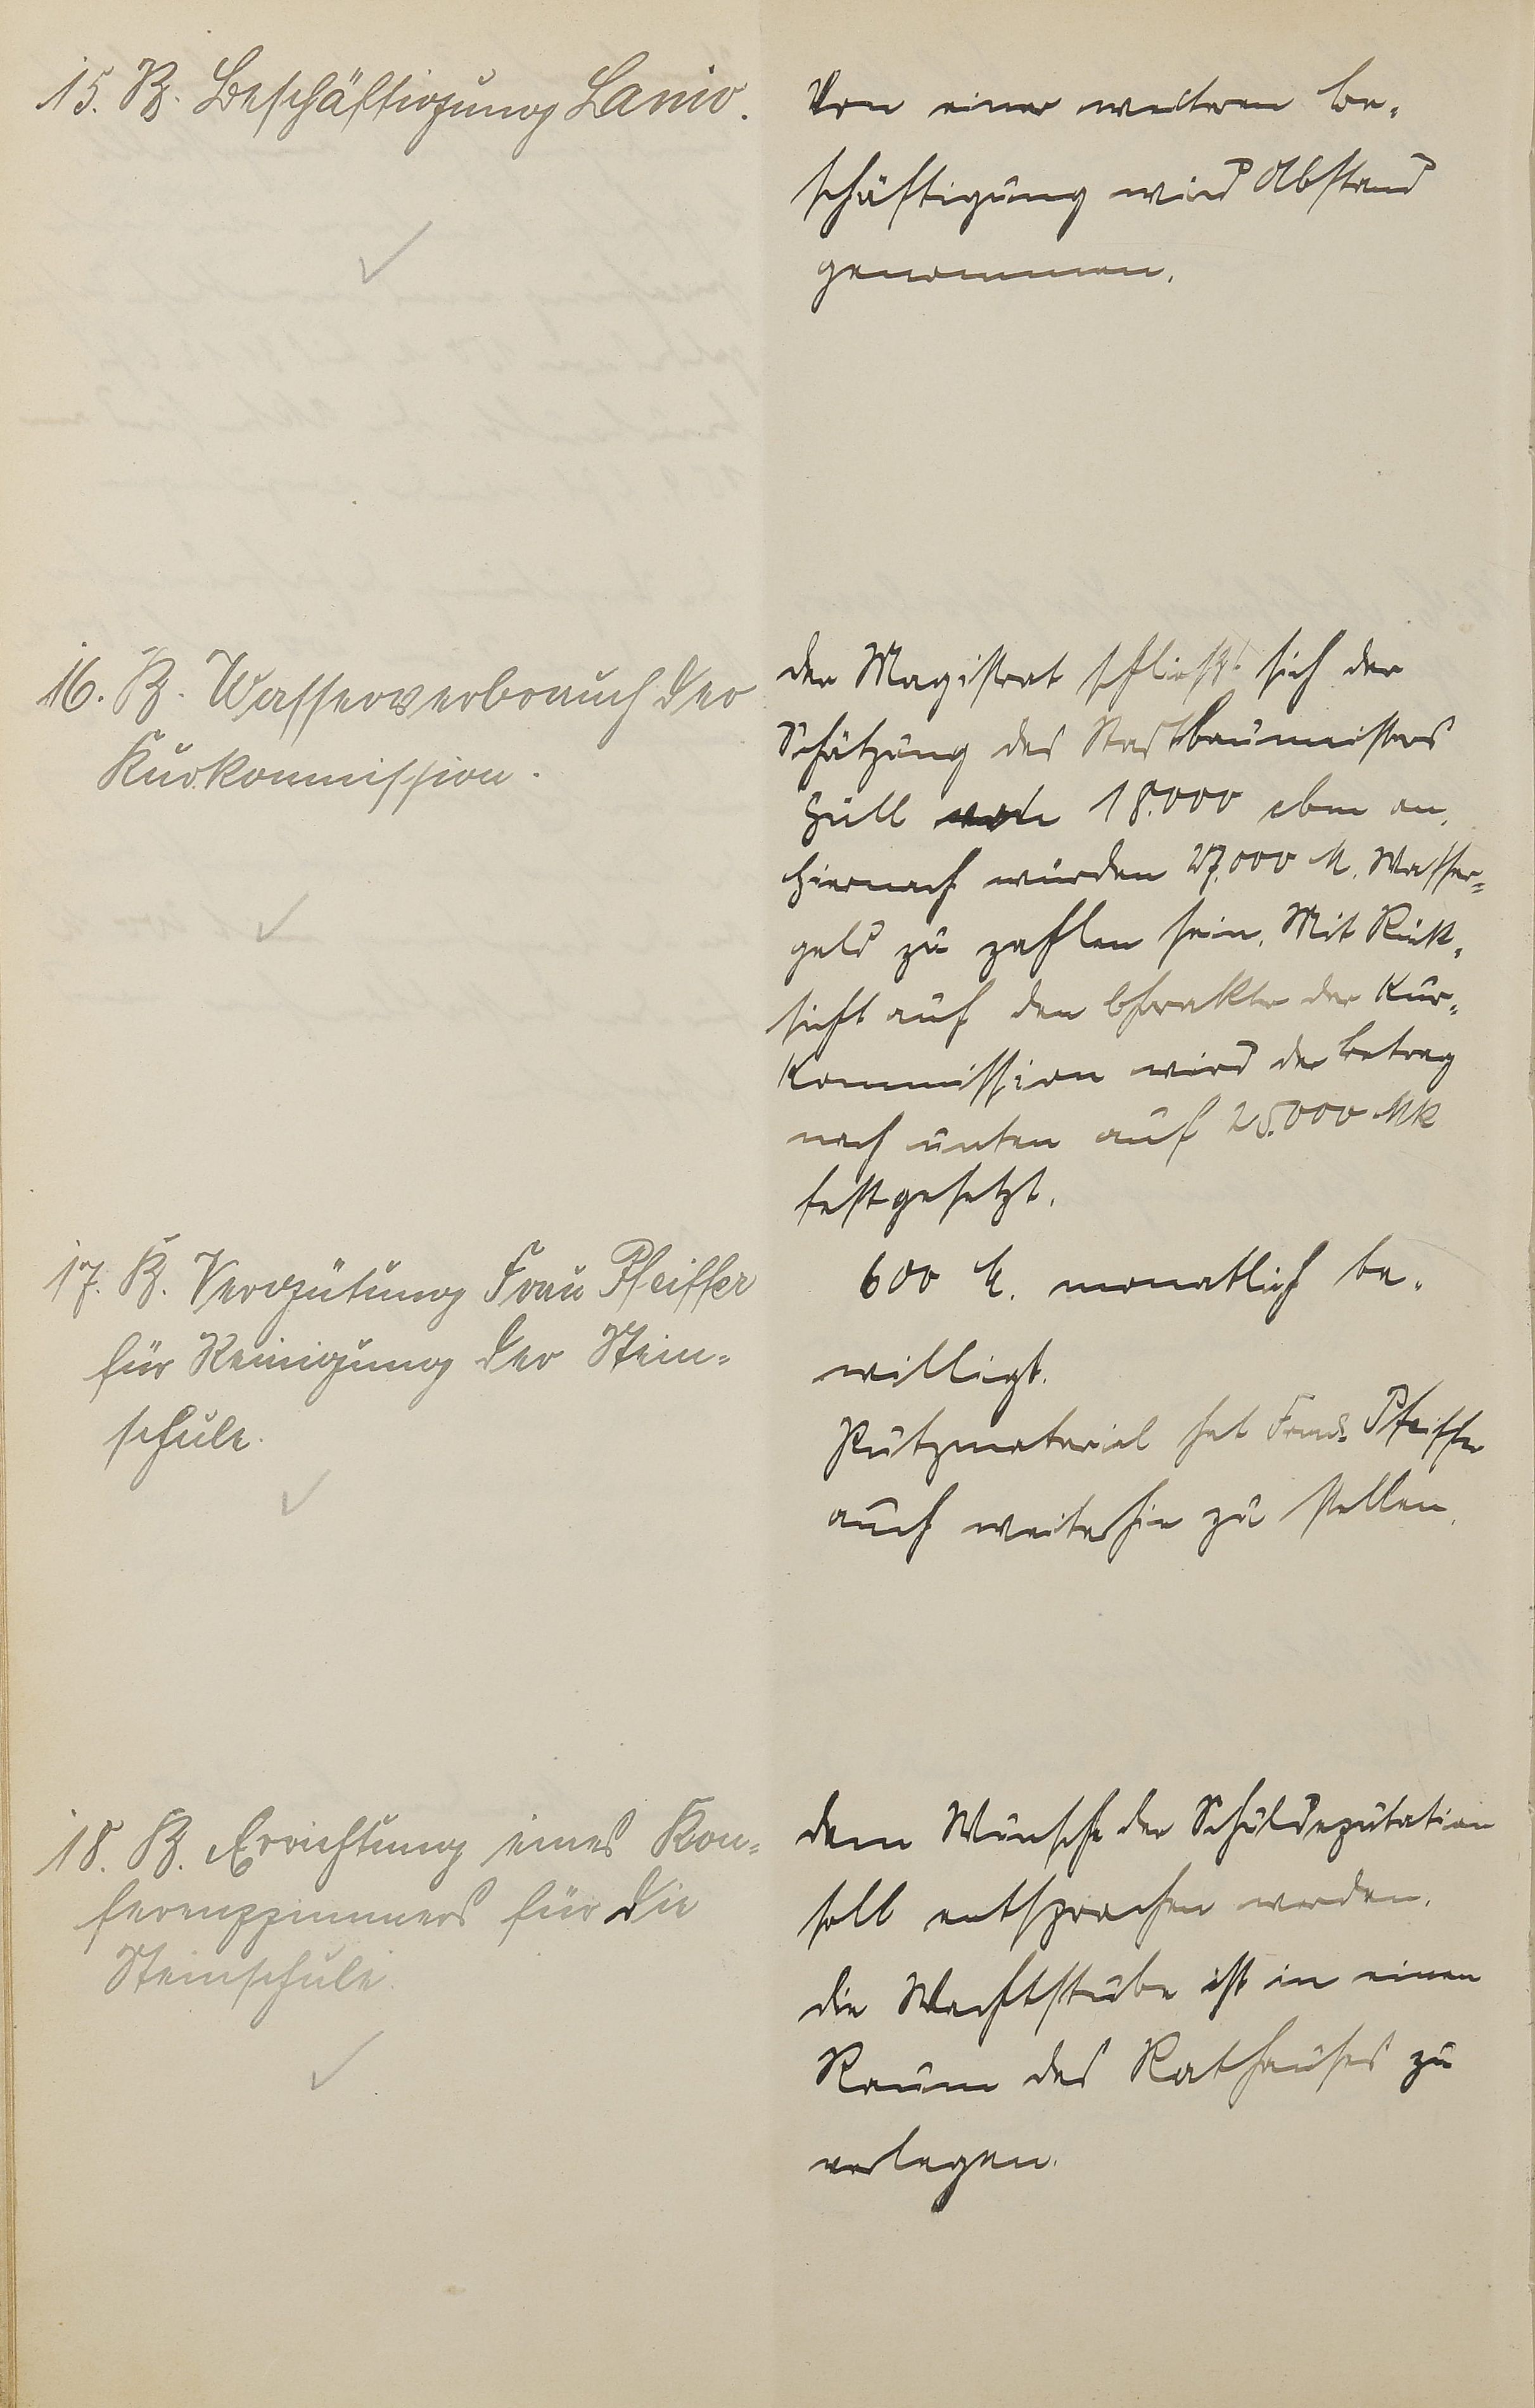 15. B. Beschäftigung Lanio.
Von einer weiteren Be-
schäftigung wird Abstand
genommen.
16. B. Wasserverbrauch der
Kurkommission.
der Magistrat schließt sich der
Schätzung des Stadtbaumeisters
Hüll von 18.000 cbm an.
Hiernach würden 27.000 M. Wasser-
geld zu zahlen sein. Mit Rück-
sicht auf den Charakter der Kur-
kommission wird der Betrag
nach unten auf 25.000 Mk
festgesetzt.
17. B. Vergütung Frau Pfeiffer
für Reinigung der Stein-
schule.
600 M. monatlich be-
willigt.
Putzmaterial hat Frau Pfeiffer
auch weiterhin zu stellen.
18. B. Errichtung eines Kon-
ferenzzimmers für die
Steinschule.
dem Wunsche der Schuldeputation
soll entsprochen werden.
die Wachtstube ist in einen
Raum des Rathauses zu
verlegen.